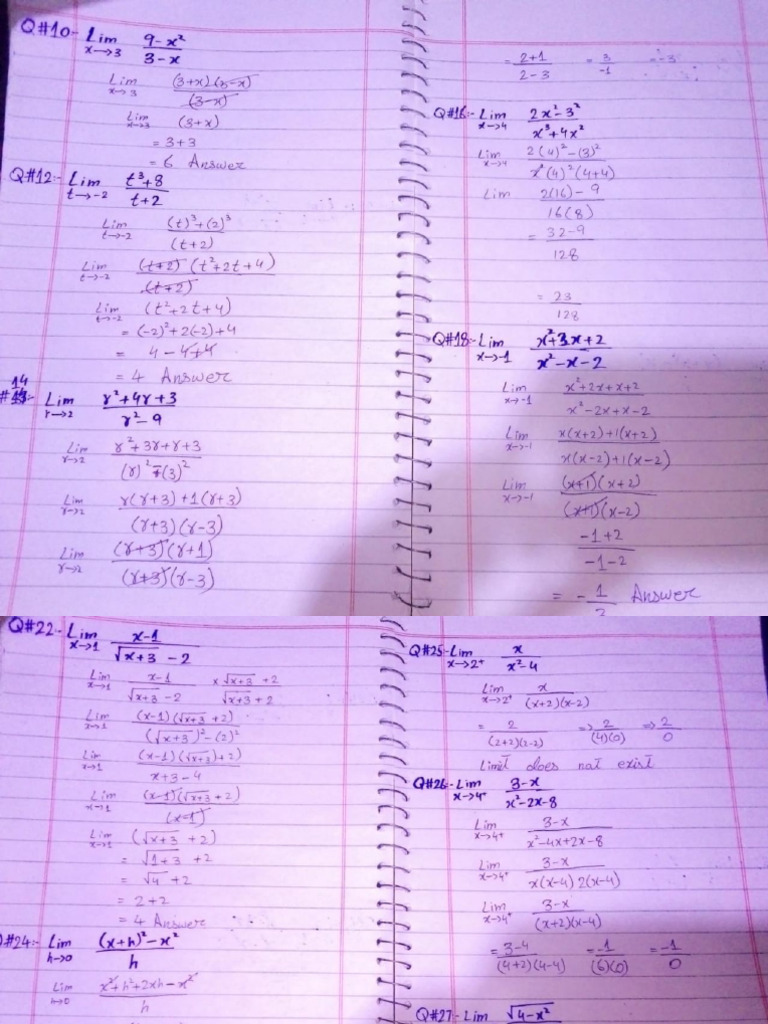 Q#10:- Lim x→3 9-x² / 3-x
Lim x→3 (3+x)(3-x) / (3-x)
Lim x→3 (3+x)
= 3+3
= 6 Answer
Q#12:- Lim t→-2 t³+8 / t+2
Lim t→-2 (t)³+(2)³ / (t+2)
Lim t→-2 (t+2)(t²+2t+4) / (t+2)
Lim t→-2 (t²+2t+4)
= (-2)²+2(-2)+4
= 4-4+4
= 4 Answer
14
#:- Lim r→2 r²+4r+3 / r²-9
Lim r→2 r²+3r+r+3 / (r)²-(3)²
Lim r→2 r(r+3)+1(r+3) / (r+3)(r-3)
Lim r→2 (r+3)(r+1) / (r+3)(r-3)
= 2+1 / 2-3 = 3 / -1 = -3
Q#16:- Lim x→4 2x²-3² / x³+4x²
Lim x→4 2(4)²-(3)² / x²(4)²(4+4)
Lim 2(16)-9 / 16(8)
= 32-9 / 128
= 23 / 128
Q#18:- Lim x→-1 x²+3x+2 / x²-x-2
Lim x→-1 x²+2x+x+2 / x²-2x+x-2
Lim x→-1 x(x+2)+1(x+2) / x(x-2)+1(x-2)
Lim x→-1 (x+1)(x+2) / (x+1)(x-2)
-1+2 / -1-2
= -1 / 3 Answer
Q#22:- Lim x→1 x-1 / √x+3 - 2
Lim x→1 x-1 / √x+3 - 2 × √x+3 + 2 / √x+3 + 2
Lim x→1 (x-1)(√x+3 + 2) / (√x+3)²-(2)²
Lim x→1 (x-1)(√x+3 + 2) / x+3-4
Lim x→1 (x-1)(√x+3 + 2) / (x-1)
Lim x→1 (√x+3 + 2)
= √1+3 + 2
= √4 + 2
= 2+2
= 4 Answer
#24:- Lim h→0 (x+h)²-x² / h
Lim h→0 x²+h²+2xh-x² / h
Q#25:- Lim x→2⁺ x / x²-4
Lim x→2⁺ x / (x+2)(x-2)
= 2 / (2+2)(2-2) ⇒ 2 / (4)(0) ⇒ 2 / 0
Limit does not exist
Q#26:- Lim x→4⁺ 3-x / x²-2x-8
Lim x→4⁺ 3-x / x²-4x+2x-8
Lim x→4⁺ 3-x / x(x-4) 2(x-4)
Lim x→4⁺ 3-x / (x+2)(x-4)
= 3-4 / (4+2)(4-4) = -1 / (6)(0) = -1 / 0
Q#27:- Lim √4-x²